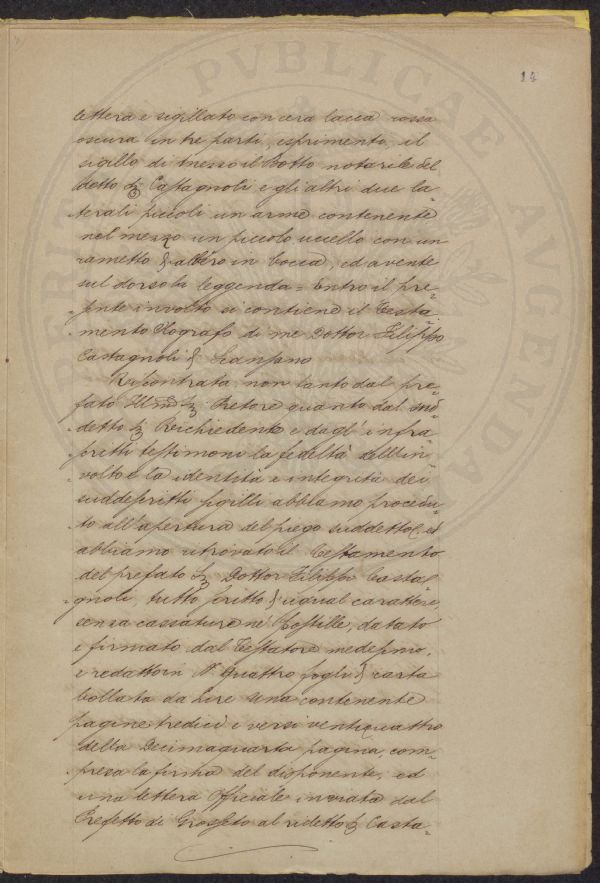 14
lettera e sigillato con cera lacca rossa
oscura in tre parti, esprimento, il
sigillo di mezzo il Motto notarile del
detto Sig. Castagnoli e gli altri due la=
=terali piccoli un arme contenente
nel mezzo un piccolo uccello con un
rametto d'albero in bocca, ed avente
sul dorso la leggenda = Entro il pre=
=sente involto si contiene il Testa=
=mento Olografo di me Dottor Filippo
Castagnoli di Scansano
Riscontrata non tanto dal pre=
=fato Illmo Sig. Pretore quanto dal sud=
=detto Sig. Richiedente e dagl'infra=
=scritti testimoni la fedeltà dell'in=
=volto e la identità e integrità dei
suddescritti sigilli abbiamo procedu=
=to all'apertura del piego suddetto, ed
abbiamo ritrovato il Testamento
del prefato Sig. Dottor Filippo Casta=
=gnoli, tutto scritto d'ugual carattere,
senza cassature né Postille, datato
e firmato dal Testatore medesimo,
e redatto in N. quattro fogli di carta
bollata da Lire una contenente
pagine tredici e versi ventiquattro
della Decimaquarta pagina, com=
=presa la firma del disponente, ed
una lettera Officiale inviata dal
Prefetto di Grosseto al ridetto Sig. Casta=
PVBLICAE
AVGENDAE